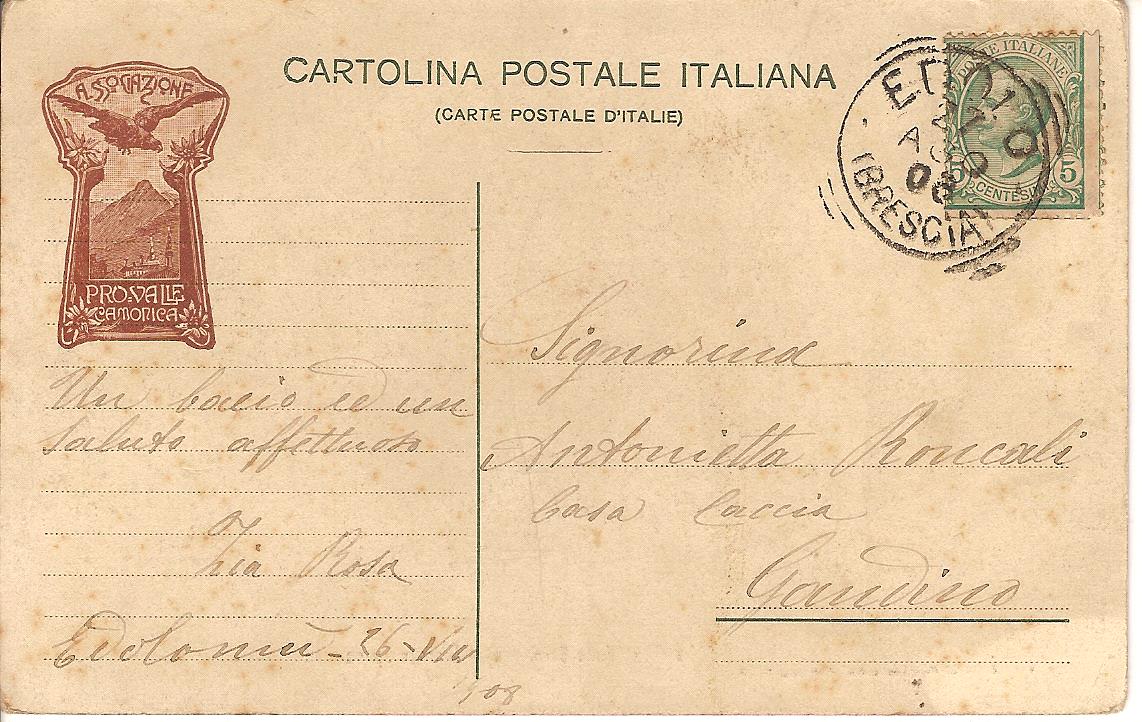 CARTOLINA POSTALE ITALIANA
(CARTE POSTALE D'ITALIE)
ASSOCIAZIONE
PRO-VALLE
CAMONICA
EDOLO
AGO
08
(BRESCIA)
POSTE ITALIANE
5 5
CENTESIMI
Un bacio ed un
saluto affettuoso
Zia Rosa
26-VIII
908
Signorina
Antonietta Roncali
Casa Caccia
Gandino